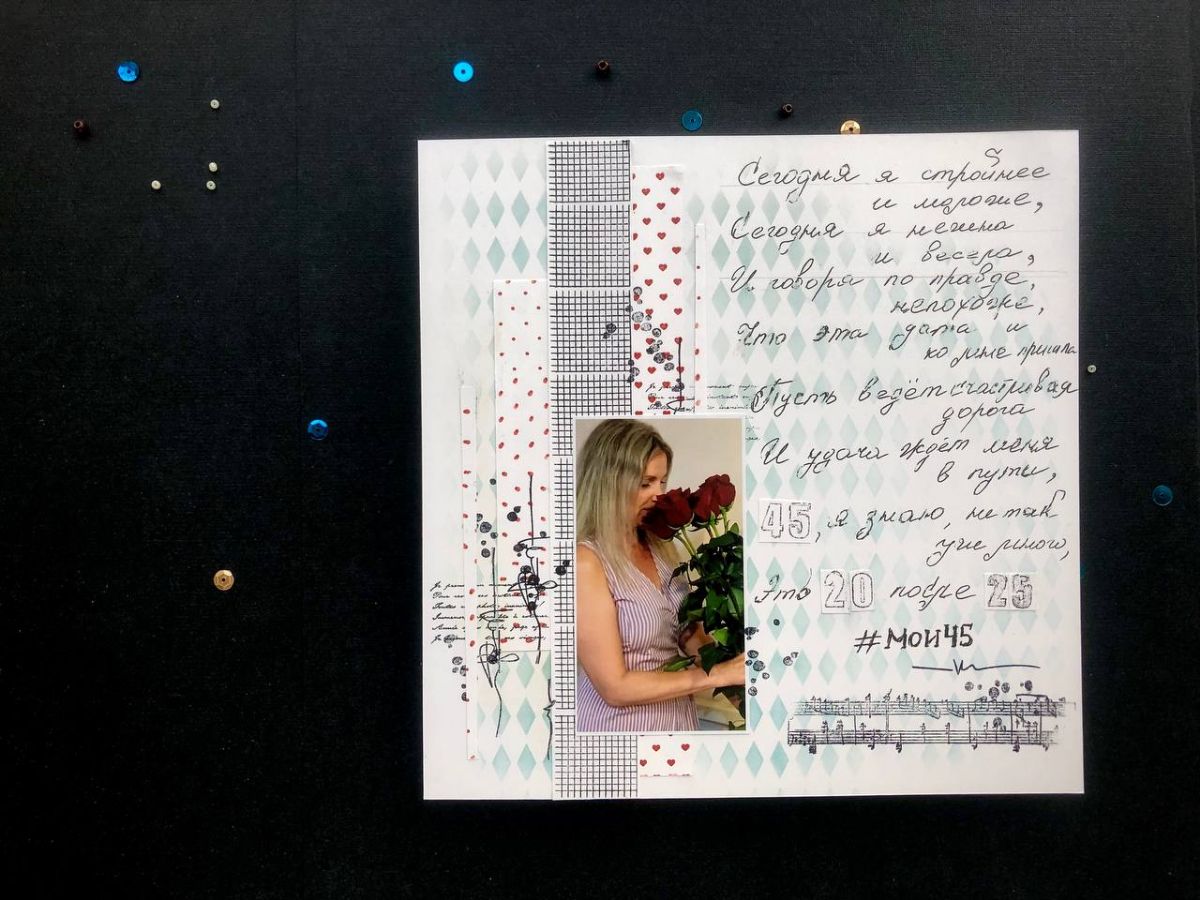 Сегодня я стройнее
и моложе,
Сегодня я нежна
и весела,
И говоря по правде,
непохоже,
Что эта дата и
ко мне пришла
Пусть ведёт счастливая
дорога
И удача ждёт меня
в пути,
45, я знаю, не так
уже много,
Это 20 после 25
#Мои45